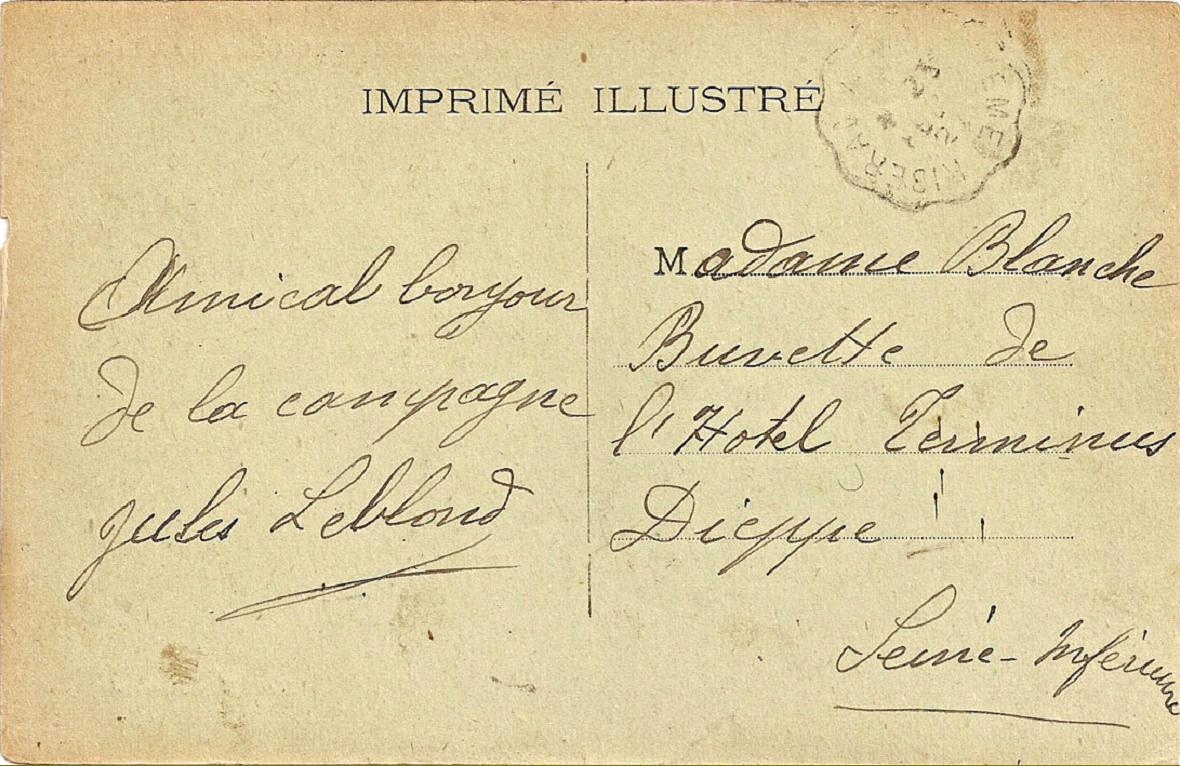 IMPRIMÉ ILLUSTRÉ
Amical bonjour
de la campagne
Jules Leblond
Madame Blanche
Buvette de
l'Hotel Terminus
Dieppe
Seine-Inférieure